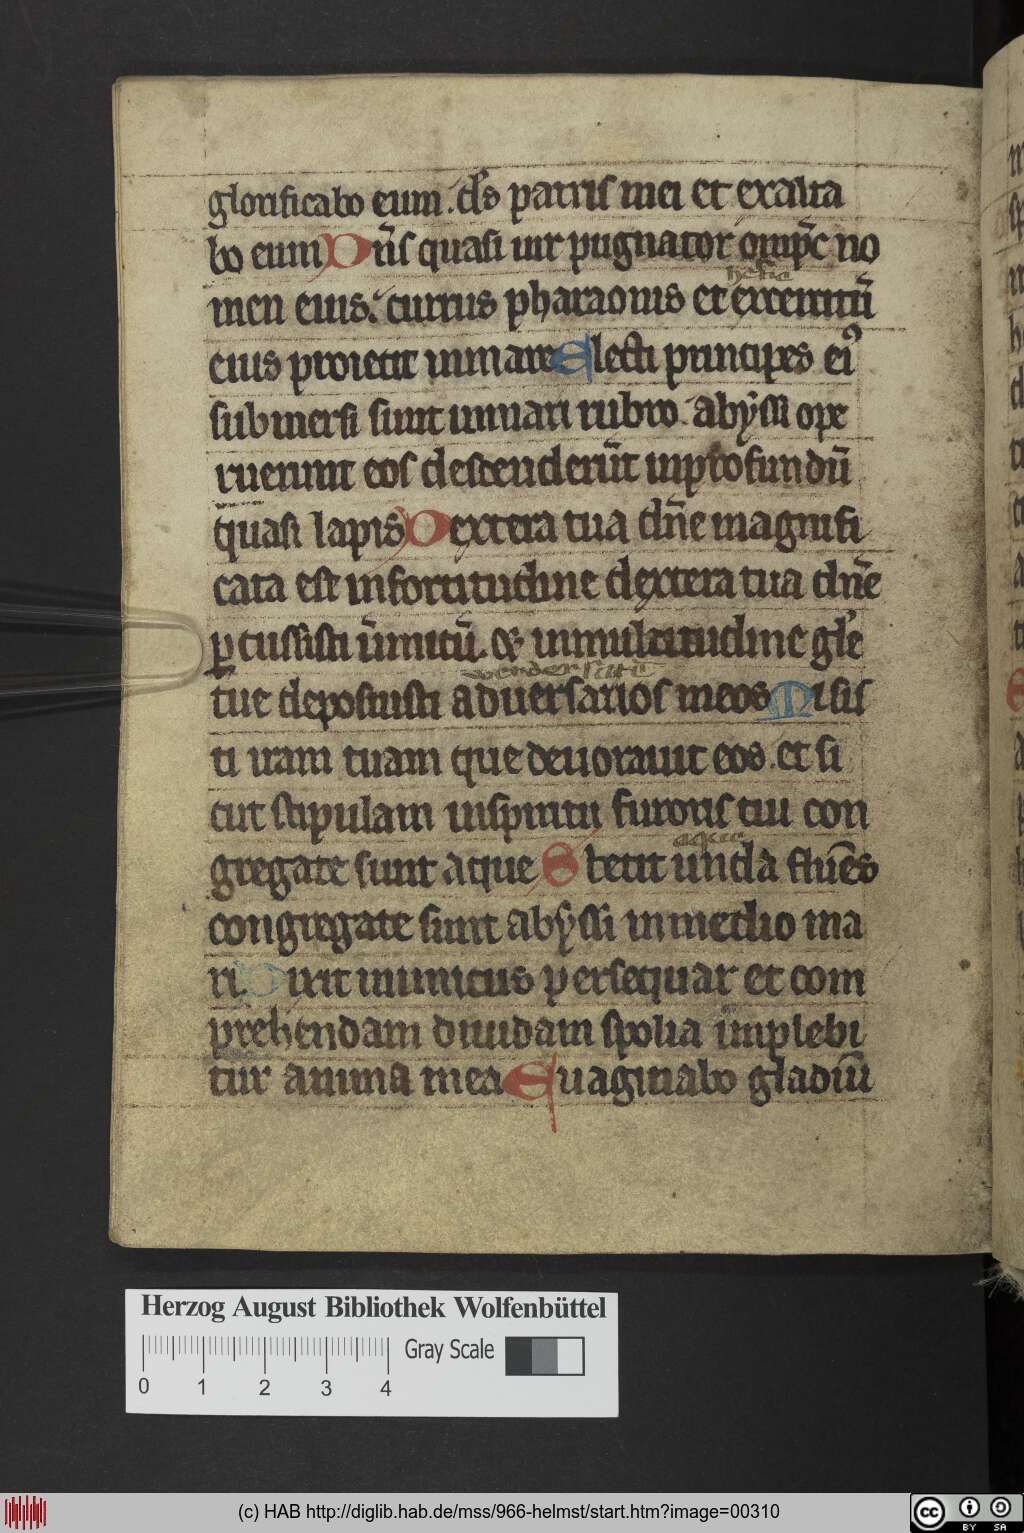 glorificabo eum . d̄s patris mei et exalta
bo eum Dn̄s quasi uir pugnator omp̄c no
men eius . currus pharaonis et exercitū
eius proiecit in mare Electi principes ei⁹
submersi sunt in mari rubro . abyssi ope
ruerunt eos descenderūt in profundū
quasi lapis Dextera tua dn̄e magnifi
cata est in fortitudine dextera tua dn̄e
ꝑcussisti īimicū . et in multitudine gl̄e
tue deposuisti aduersarios meos Misis
ti iram tuam que deuorauit eos . et si
cut stipulam in spiritu furoris tui con
gregate sunt aque Stetit unda flūes
congregate sunt abyssi in medio ma
ri . Dixit inimicus persequar et com
prehendam diuidam spolia implebi
tur anima mea Euaginabo gladiū
Herzog August Bibliothek Wolfenbüttel
Gray Scale
0 1 2 3 4
(c) HAB http://diglib.hab.de/mss/966-helmst/start.htm?image=00310
cc BY SA